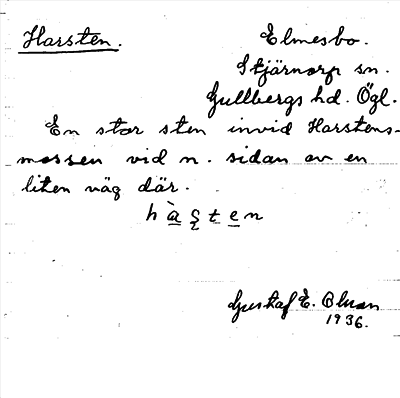 Harsten. Elmesbo.
Stjärnorp sn.
Gullbergs hd. Ögl.
En stor sten invid Harstens-
mossen vid n. sidan av en
liten väg där.
hàs̨ten
Gustaf E. Oluan
1936.